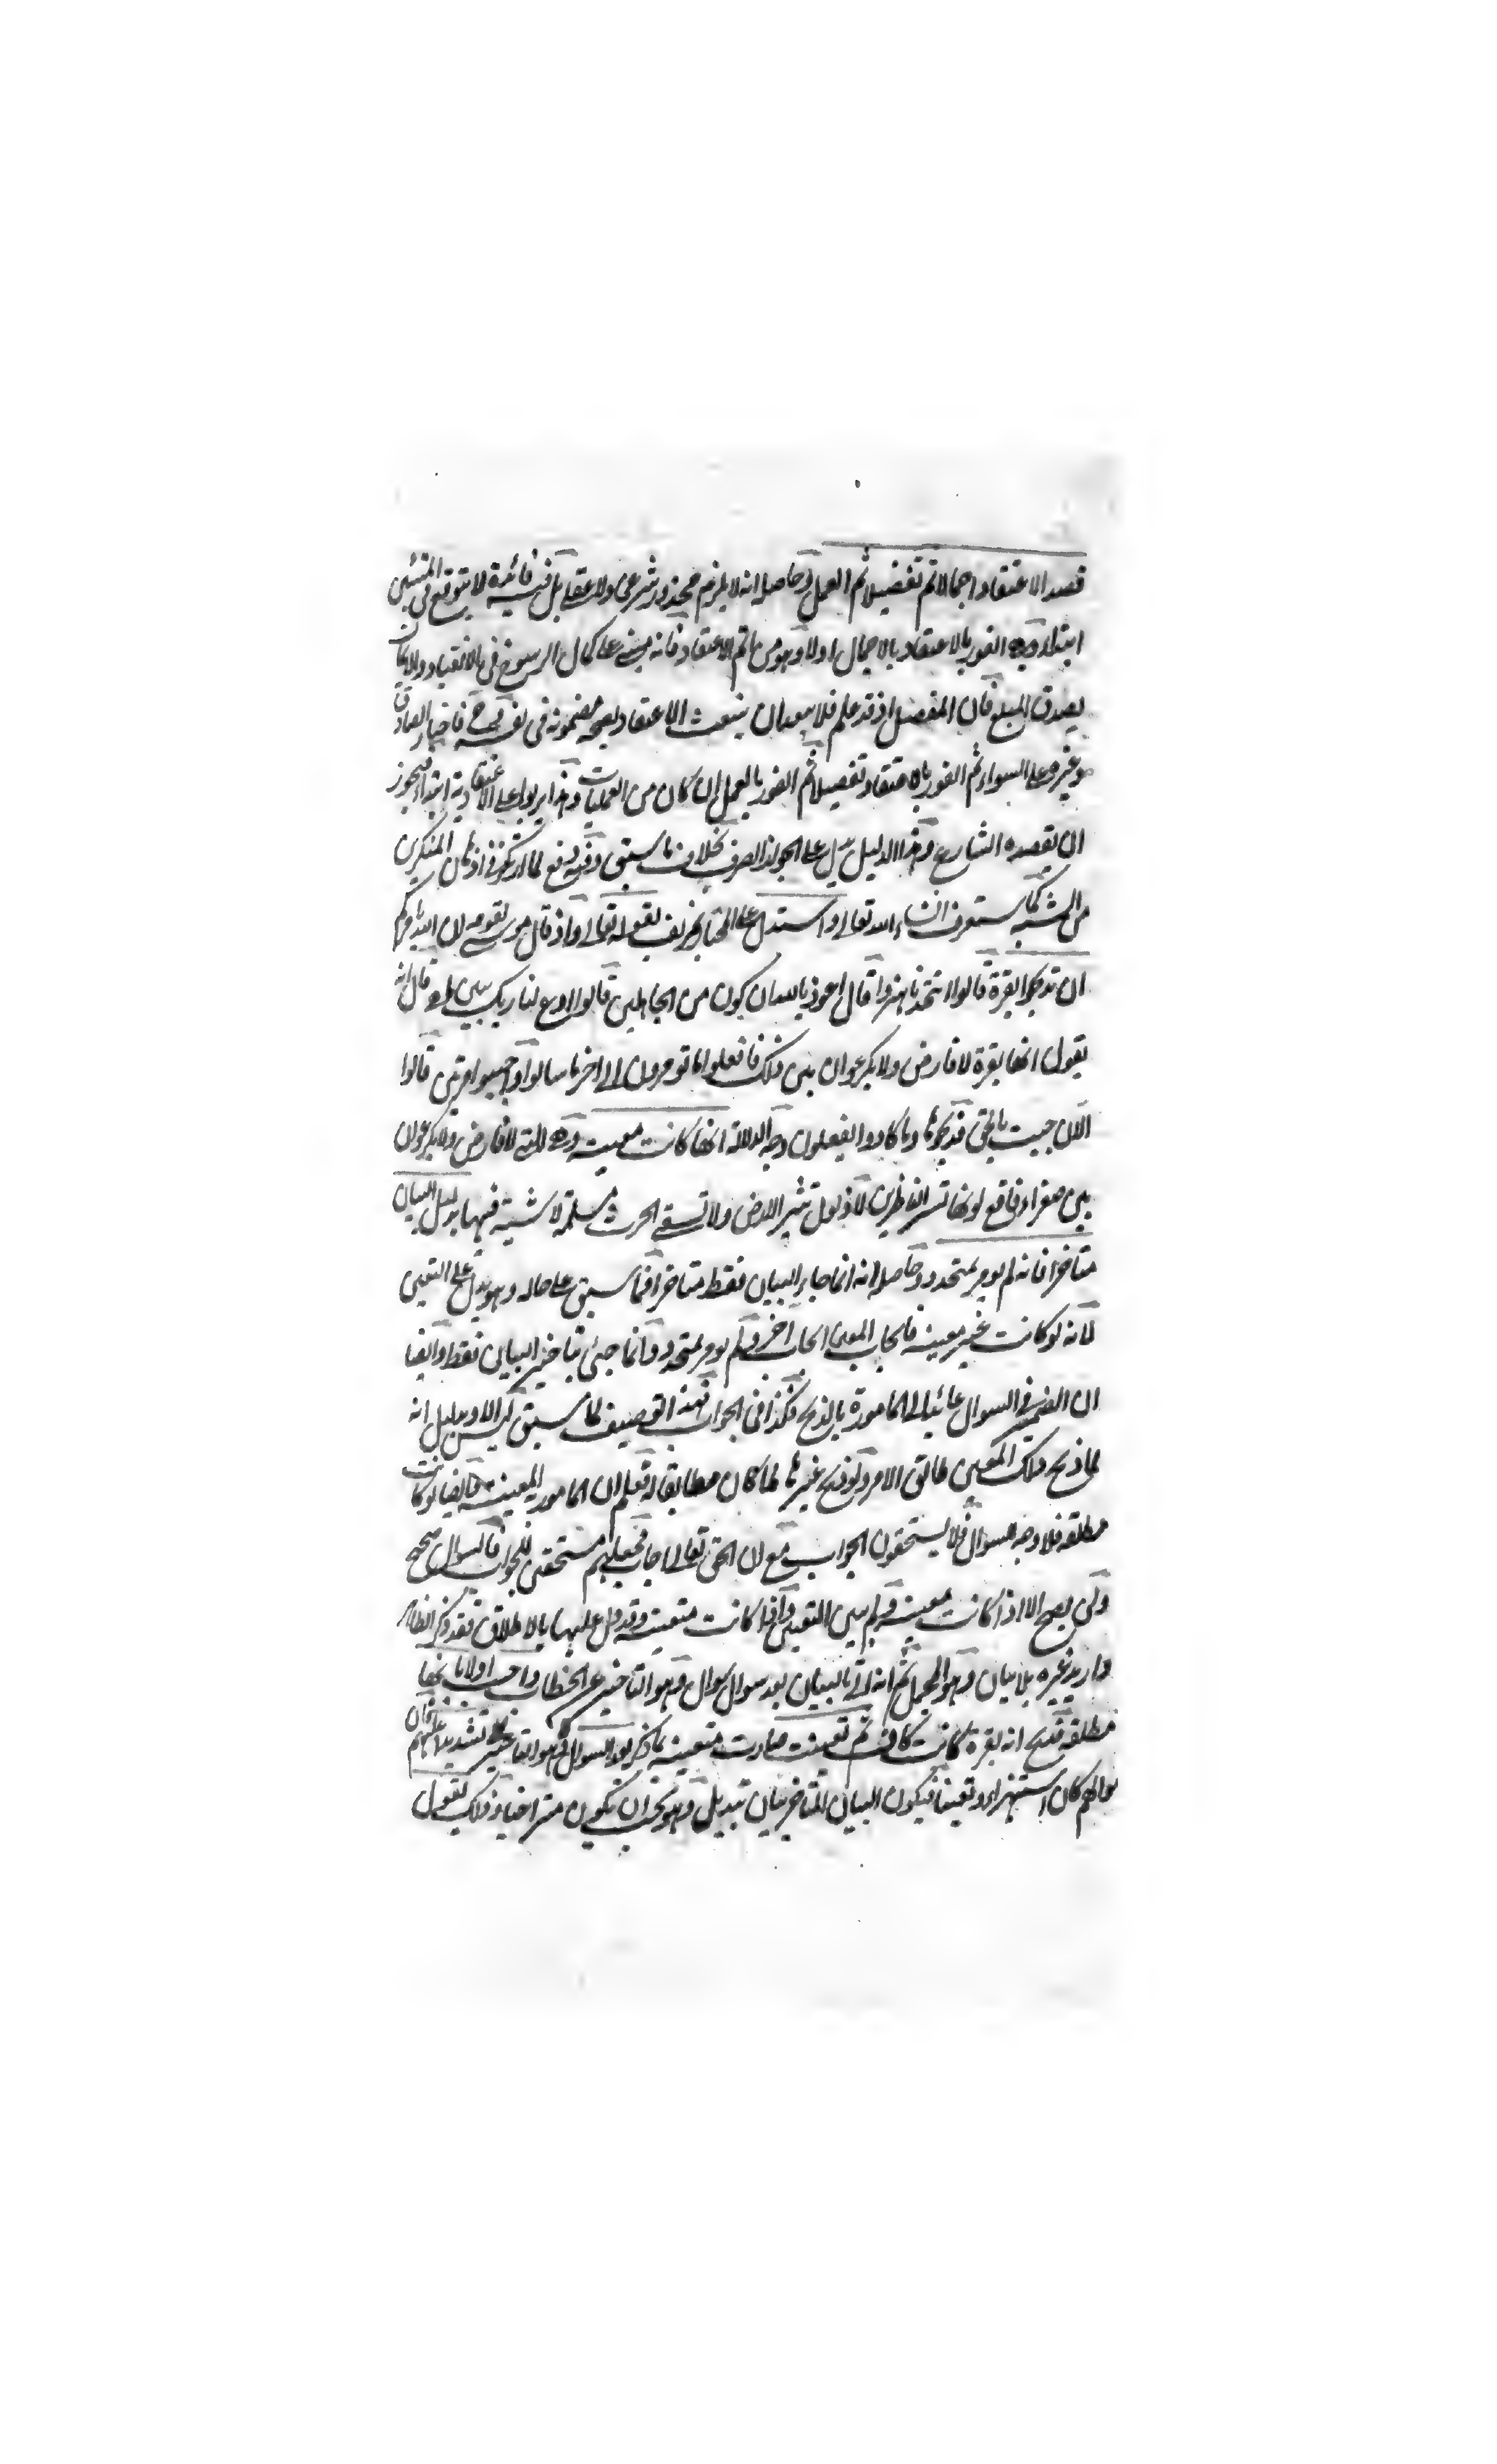 قصد الاعتقاد اجمالا ثم تفصيلا ثم العمل وحاصله انه لا يلزم محذور شرعى ولا عقلى بل فيه فائدة لا تتوقع فى
ابتداء وهو الفور بالاعتقاد بالاجمال اولا وهو من اتم الاعتقاد فانه مبنى على كمال الرسوخ فى الانقياد والايمان
بصدق المبلغ فان المفصل اذ قد علم فلا يبعد ان ينبعث الاعتقاد بصحة مضمونه فى نفسه فاخبار الصادق
وغيره على السواء ثم الفور بالاعتقاد تفصيلا ثم الفور بالعمل ان كان من العمليات وهذا يربو على الاعتقادية ابتداء فيجوز
ان يقصده الشارع وهذا الدليل يدل على الجواز الصرف بخلاف ما سبق وفيه دفع لما ارتكز فى اذهان المنكرين
من الشبه كما ستعرف ان شاء الله تعالى واستدل على المختار بقوله تعالى واذ قال موسى لقومه ان الله يامركم
ان تذبحوا بقرة قالوا اتتخذنا هزوا قال اعوذ بالله ان اكون من الجاهلين قالوا ادع لنا ربك يبين لنا ما هى قال انه
يقول انها بقرة لا فارض ولا بكر عوان بين ذلك فافعلوا ما تومرون الى اخر ما سالوا واجيبوا مرتين قالوا
الان جيت بالحق فذبحوها وما كادوا يفعلون وجه الدلالة انها كانت معينة وهى التى لا فارض ولا بكر عوان
بين صفراء فاقع لونها تسر الناظرين لا ذلول تثير الارض ولا تسقى الحرث مسلمة لا شية فيها بدليل البيان
متاخرا فانه لم يومر بمتجدد وحاصله انه انما جاء البيان فقط متاخرا فما سبق على حاله وهو يدل على التعيين
لانه لو كانت غير معينة فايجاب المعين ايجاب اخر ولم يومر بمتجدد وانما جيئ بتاخير البيان فقط وايضا
ان الضمير فى السوال عائد الى المامورة بالذبح فكذا فى الجواب فهذا توصيف لما سبق ليس الا وبدليل انه
لما ذبح ذلك المعين طابق الامر ولو ذبح غيرها لما كان مطابقا له فعلم ان المامور المعينة وايضا لو كانت
مطلقة فلا وجه للسوال فلا يستحقون الجواب مع ان الحق تعالى اجاب فجعلهم مستحقين للجواب فالسوال صحيح
ولن يصح الا اذا كانت معينة ولم يبين التعين واذا كانت متعينة وقد دل عليها بالاطلاق فقد ذكر الظاهر
واريد غيره بلا بيان وهو المجمل ثم انه اتى بالبيان بعد سوال سوال وهو التاخير عن الخطاب واجيب اولا بانها
مطلقة فتصح انه بقرة كانت كافية ثم تعينت صارت متعينة بما ذكر بعد السوال وهو التاخير تشديدا عليهم فان
سوالهم كان استهزاء وتعنتا فيكون البيان المتاخر بيان تبديل وهو يجب ان يكون متراخيا وذلك لقول